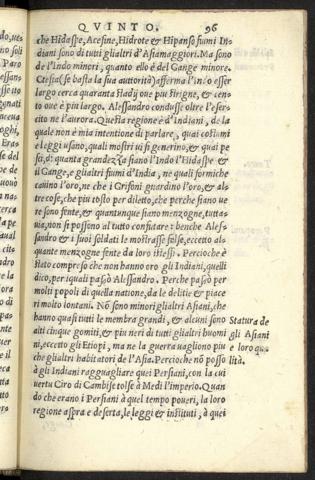 QVINTO. 96
che Hidaspe, Acesine, Hidrote & Hipanso fiumi In-
diani sono di tutti gli altri d'Asia maggiori. Ma sono
de l'Indo minori, quanto ello è del Gange minore.
Ctesia (se basta la sua autorità) afferma l'Indo esser
largo cerca quaranta stadij oue piu strigne, & cen-
to oue è piu largo. Alessandro condusse oltre l'eser-
cito ne l'aurora. Questa regione è d'Indiani, de la
quale non è mia intentione di parlare, quai costumi
e leggi usano, quali mostri ui si generino, & quai pe-
sci, di quanta grandezza siano l'Indo l'Hidaspe &
il Gange, e gli altri fiumi d'India, ne quali formiche
cauino l'oro, ne che i Grifoni guardino l'oro, & al-
tre cose, che piu tosto per diletto, che perche siano ue
re sono finte, & quantunque siano menzogne, tutta-
uia, non si possono al tutto confutare: benche Ales-
sandro e i suoi soldati le mostrasse false, eccetto al-
quante menzogne finte da loro istessi. Percioche è
stato compreso che non hanno oro gli Indiani, quelli
dico, per iquali passò Alessandro. Perche passò per
molti popoli di quella natione, da le delitie & piace
ri molto lontani. Nõ sono minori gli altri Asiani, che
hanno quasi tutti le membra grandi, & alcuni sono
alti cinque gomiti, & piu neri di tutti gli altri huomi
ni, eccetto gli Etiopi, ma ne la guerra uagliono piu
che gli altri habitatori de l'Asia. Percioche nõ posso
à gli Indiani ragguagliare quei Persiani, con la cui
uertu Ciro di Cambise tolse à Medi l'imperio. Quan
do che erano i Persiani à quel tempo poueri, la loro
regione aspra e deserta, le leggi & instituti, à quei
Statura de
gli Asiani
e loro qua
lità.